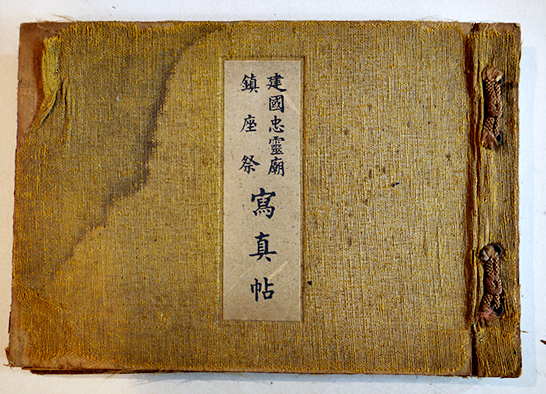 建國忠靈廟
鎮座祭
寫真帖